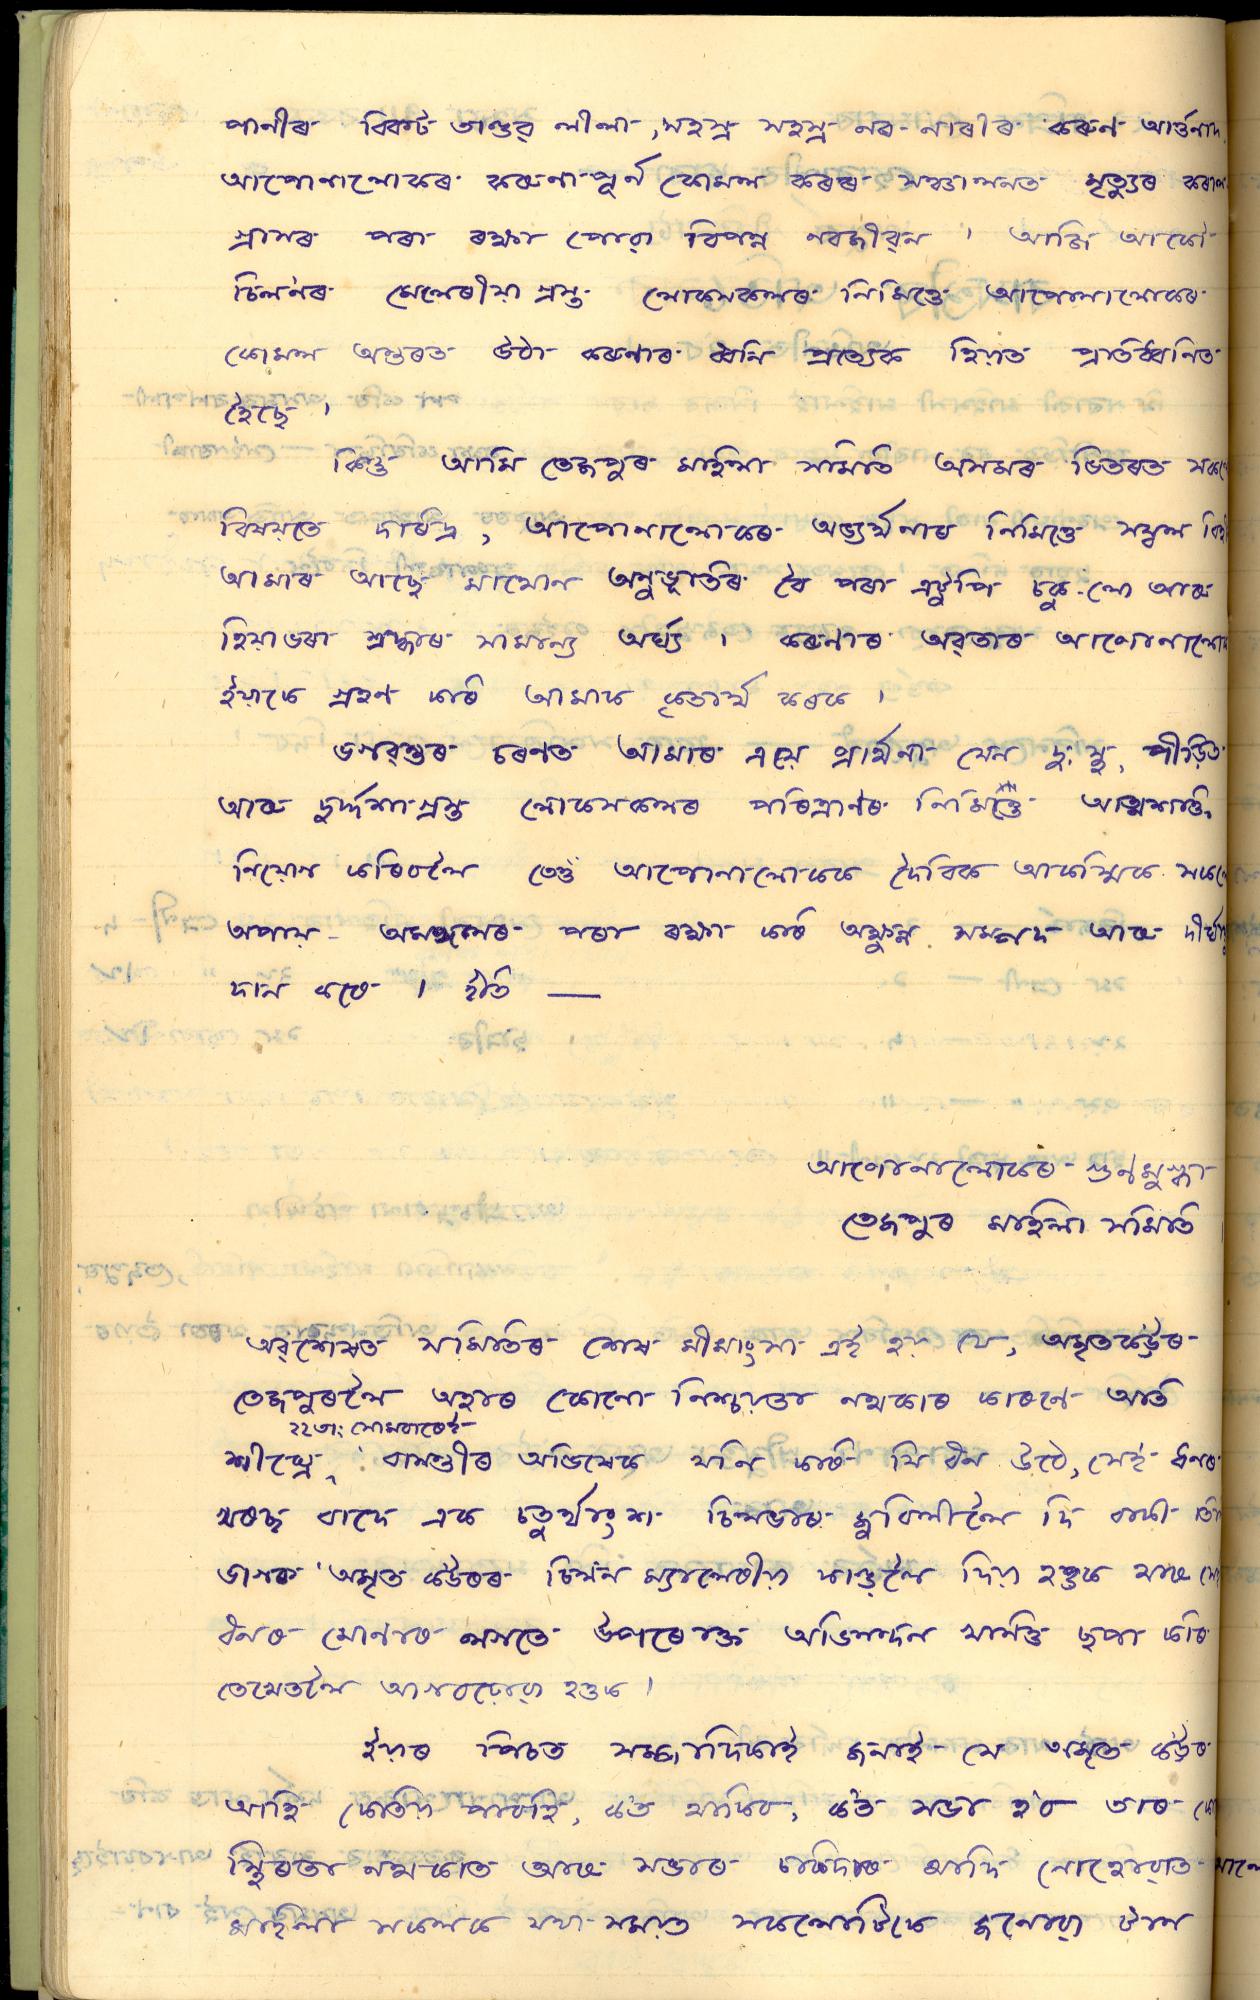 পানীৰ বিকট তাণ্ডৱ লীলা, সহস্ৰ সহস্ৰ নৰ-নাৰীৰ কৰুণ আৰ্ত্তনাদ
আপোনালোকৰ কৰুণা-পূৰ্ণ কোমল কৰৰ সঞ্চালনত মৃত্যুৰ কৰাল
গ্ৰাসৰ পৰা ৰক্ষা পোৱা বিপন্ন নৰজীৱন । আজি আকৌ
চিলনৰ মেলেৰীয়া গ্ৰস্ত লোকসকলৰ নিমিত্তে আপোনালোকৰ
কোমল অন্তৰত উঠা কৰুণাৰ ধ্বনি প্ৰত্যেক হিয়াত প্ৰতিধ্বনিত
হৈছে ।
কিন্তু আমি তেজপুৰ মহিলা সমিতি অসমৰ ভিতৰত সকলো
বিষয়তে দৰিদ্ৰ, আপোনালোকৰ অভ্যৰ্থনাৰ নিমিত্তে সম্বল
আমাৰ আছে মাথোন অনুভূতিৰ বৈ পৰা এটুপি চকু-লো আৰু
হিয়াভৰা শ্ৰদ্ধাৰ সামান্য অৰ্ঘ্য । কৰুণাৰ অৱতাৰ আপোনালোকে
ইয়াকে গ্ৰহণ কৰি আমাক কৃতাৰ্থ কৰক ।
ভগৱন্তৰ চৰণত আমাৰ এয়ে প্ৰাৰ্থনা যেন দুঃস্থ, পীড়িত
আৰু দুৰ্দ্দশা-গ্ৰস্ত লোকসকলৰ পৰিত্ৰাণৰ নিমিত্তে আত্মশক্তি
নিয়োগ কৰিবলৈ তেওঁ আপোনালোকক দৈৱিক আকস্মিক সকলো
অপায় অমঙ্গলৰ পৰা ৰক্ষা কৰি অক্ষুন্ন সম্পদ আৰু দীৰ্ঘায়ু
দান কৰে । ইতি —
আপোনালোকৰ গুণমুগ্ধা
তেজপুৰ মহিলা সমিতি ।
অৱশেষত সমিতিৰ শেষ মীমাংসা এই হয় যে, অমৃতকউৰৰ
তেজপুৰলৈ অহাৰ কোনো নিশ্চয়তা নথকাৰ কাৰণে অতি
২২তাং সোমবাৰেই
শীঘ্ৰে বাসন্তীৰ অভিষেক খনি কৰি যি ধন উঠে, সেই ধনৰ
খৰছ বাদে এক চতুৰ্থাংশ চিলভাৰ জুবিলীলৈ দি বাকী তিনি
ভাগৰ অমৃত কউৰৰ চিলন ম্যালেৰীয়া ফাণ্ডলৈ দিয়া হওক আৰু সেই
ধনৰ মোণাৰ লগতে উপৰোক্ত অভিনন্দন খনিও ছপা কৰি
তেখেতলৈ আগবঢ়োৱা হওক ।
ইয়াৰ পিচত সম্পাদিকাই জনাই যে অমৃত কউৰ
আহি কেতিয়া পাবহি, ক'ত থাকিব, ক'ত সভা হ'ব তাৰ
স্থিৰতা নথকাত আৰু সভাৰ চকিদাৰ আদি নোহোৱাত
মহিলা সকলক যথা-সময়ত সকলোটিকে জনোৱা টান